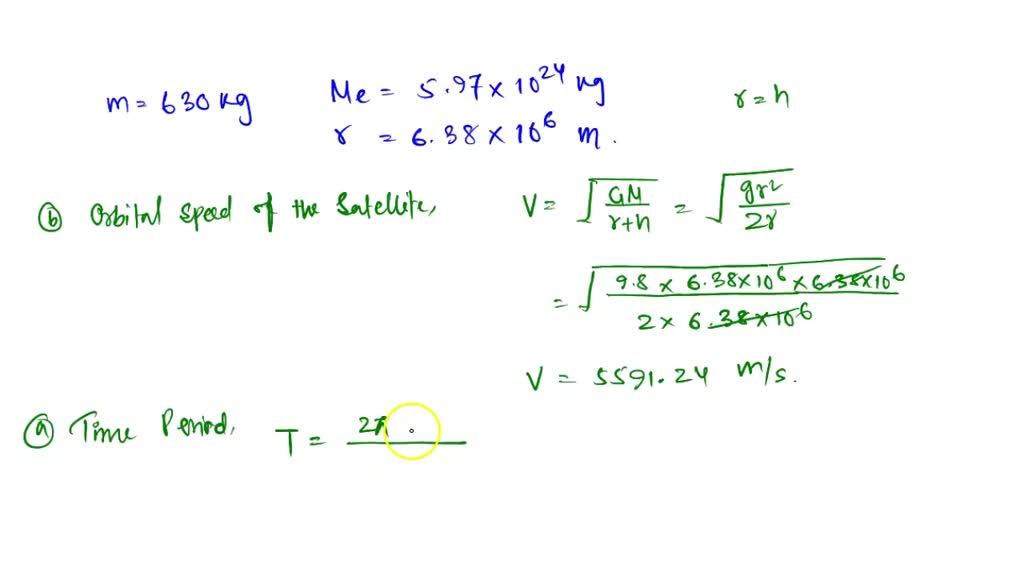 m = 630 kg
Me = 5.97 × 10²⁴ kg
r = 6.38 × 10⁶ m.
r = h
ⓑ Orbital Speed of the Satellite,
V = √(GM/(r+h)) = √(gr²/2r)
= √((9.8 × 6.38×10⁶ × 6.38×10⁶)/(2 × 6.38×10⁶))
V = 5591.24 m/s.
ⓐ Time Period, T = 2π